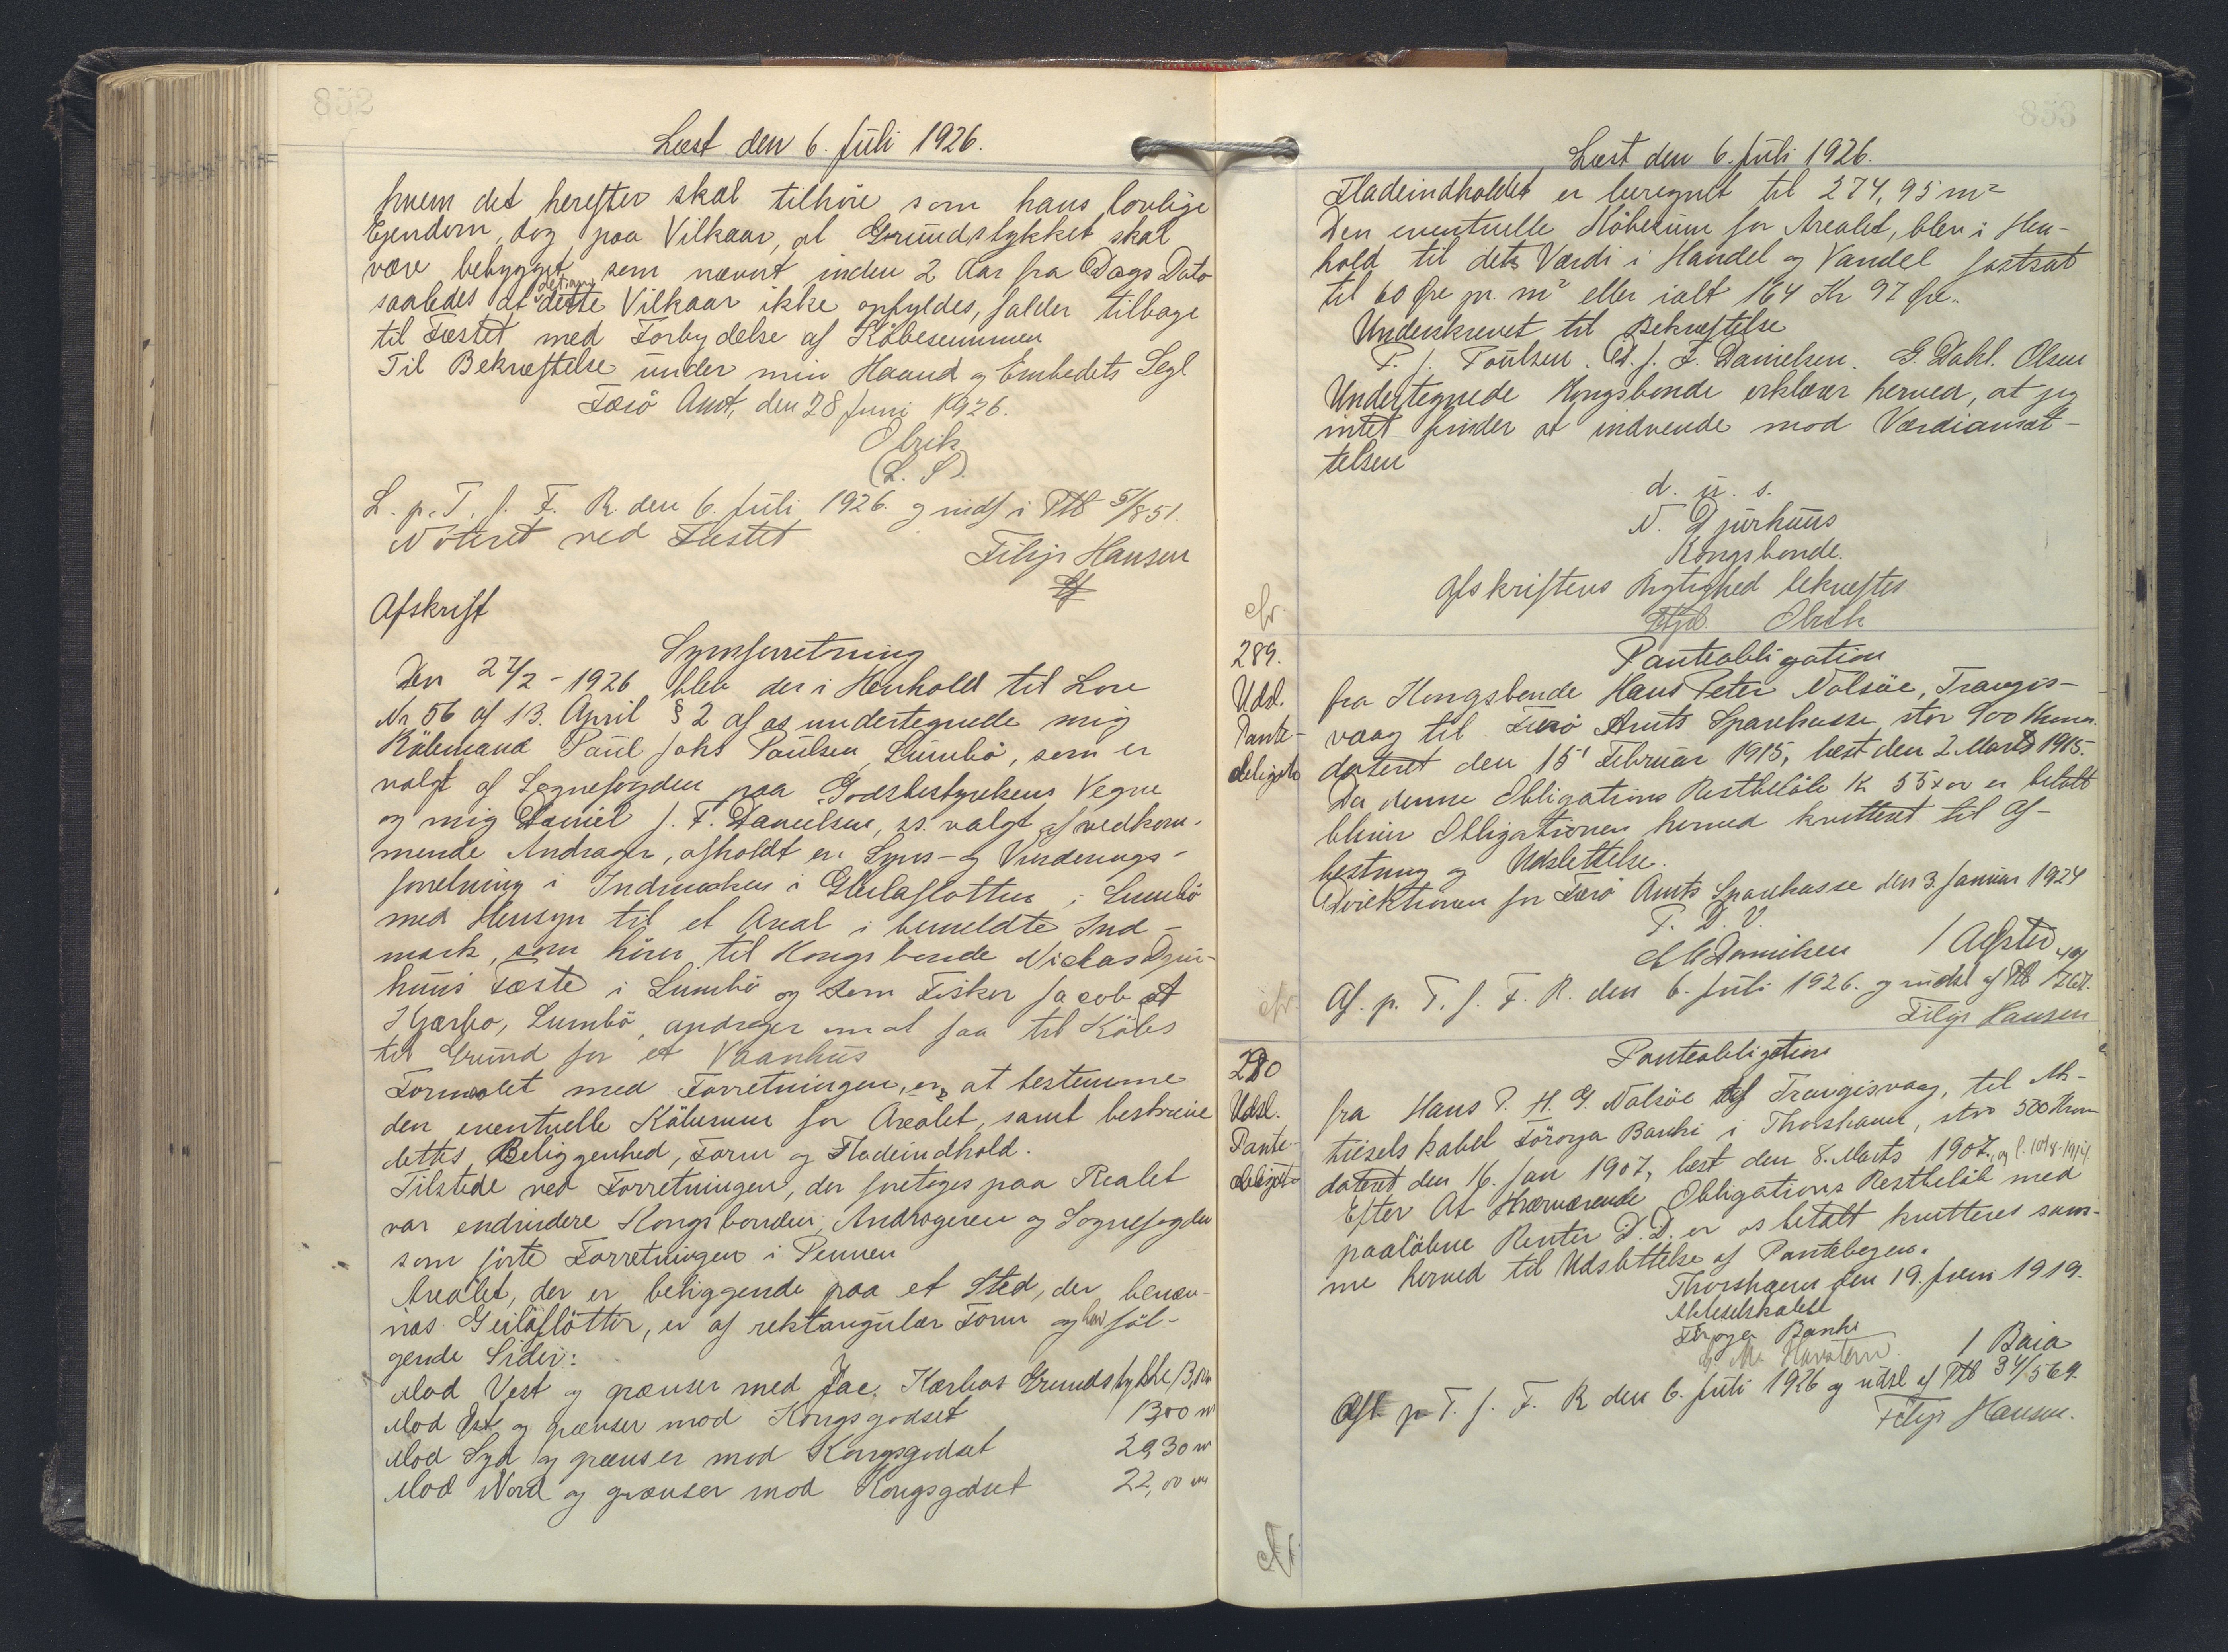 852
Læst den 6. Juli 1926.
hvem det herefter skal tilhøre som hans lovlige
Ejendom, dog paa Vilkaar, at Grundstykket skal
være bebygget som nævnt inden 2 Aar fra Dags Dato
saaledes at dette Vilkaar ikke opfyldes, falder tilbage
til Fæstet med Forbydelse af Købesummen
Til Bekræftelse under min Haand og Embedets Segl
Færö Amt, den 28 Juni 1926.
Elrik
(L. S).
L. p. T. f. F. R. den 6. Juli 1926. og indf i Ptb 5/851.
Noteret ved Fæstet
Filip Hansen
Afskrift
Synsforretning
Den 27/2 - 1926 blev der i Henhold til Lov
Nr 56 af 13. April § 2 af os undertegnede mig
Købmand Paul Johs Poulsen, Sumbö, som er
valgt af Sognefogden paa Godsbestyrelsens Vegne
og mig Daniel J. F. Danielsen, ss. valgt af vedkom-
mende Andrager, afholdt en Syns- og Vurderings-
forretning i Indmarken i Geilaflötten i Sumbö
med Hensyn til et Areal i bemeldte Ind-
mark, som hører til Kongsbonde Niclas Djur-
huus Fæste i Sumbö og som Fisker Jacob at
I Gærbo, Sumbö, andrager om at faa til Købs
til Grund for et Vaanhus
Formaalet med Forretningen, er, at bestemme
den eventuelle Købesum for Arealet, samt beskrive
dettes Beliggenhed, Form og Fladeindhold.
Tilstede ved Forretningen, der foretoges paa Realet
var endvidere Kongsbonden, Andrageren og Sognefogden
som førte Forretningen i Pennen
Arealet, der er beliggende paa et Sted, der benæv-
nes Geilaflöttir, er af rektangulær Form og har føl-
gende Sider:
Mod Vest og grænser med Jac. Kærbos Grundstykke 13,00 m
Mod Øst og grænser mod Kongsgodset 13,00 m
Mod Syd og grænser mod Kongsgodset 20,30 m
Mod Nord og grænser mod Kongsgodset 22,00 m
853
Læst den 6. Juli 1926.
Fladeindholdet er beregnet til 274,95 m²
Den eventuelle Købesum for Arealet, blev i Hen-
hold til dets Værdi i Handel og Vandel fastsat
til 60 Øre pr. m² eller ialt 164 Kr 97 Øre.
Underskrevet til Bekræftelse
P. J. Poulsen. D. J. F. Danielsen. G. Dahl. Olsen
Undertegnede Kongsbonde erklærer herved, at jeg
intet finder at indvende mod Værdiansæt-
telsen
d. u. s.
N. Djurhuus
Kongsbonde.
Afskriftens Rigtighed bekræftes
Elrik
289.
Udsl.
Pante-
obligats
Panteobligation
fra Kongsbonde Hans Peter Nolsöe, Trangis-
vaag til Færö Amts Sparekasse, stor 900 Kroner
dateret den 15' Februar 1915, læst den 2 Marts 1915.
Da denne Obligations Restbeløb Kr 55 + er betalt
bliver Obligationen herved kvitteret til Af-
læsning og Udslettelse.
Direktionen for Færö Amts Sparekasse den 3. Januar 1924
P. D. V.
Af. p. T. f. F. R. den 6. Juli 1926. og udsl af Ptb
Filip Hansen
280
Udsl.
Pante-
obligats
Panteobligation
fra Hans P. H. G. Nolsöe af Trangisvaag, til Ak-
tieselskabet Föroya Banki i Thorshavn, stor 500 Kroner
dateret den 16. Jan 1907, læst den 8. Marts 1907.
Efter At Nærværende Obligations Restbeløb med
paaløbne Renter D. D. er os betalt kvitteres sam-
me herved til Udslettelse af Pantebogen.
Thorshavn den 19. Juni 1919.
Aktieselskabet
Föroya Banki
Afl. p. T. f. F. R den 6. Juli 1926 og udsl af Ptb 34/569.
Filip Hansen.